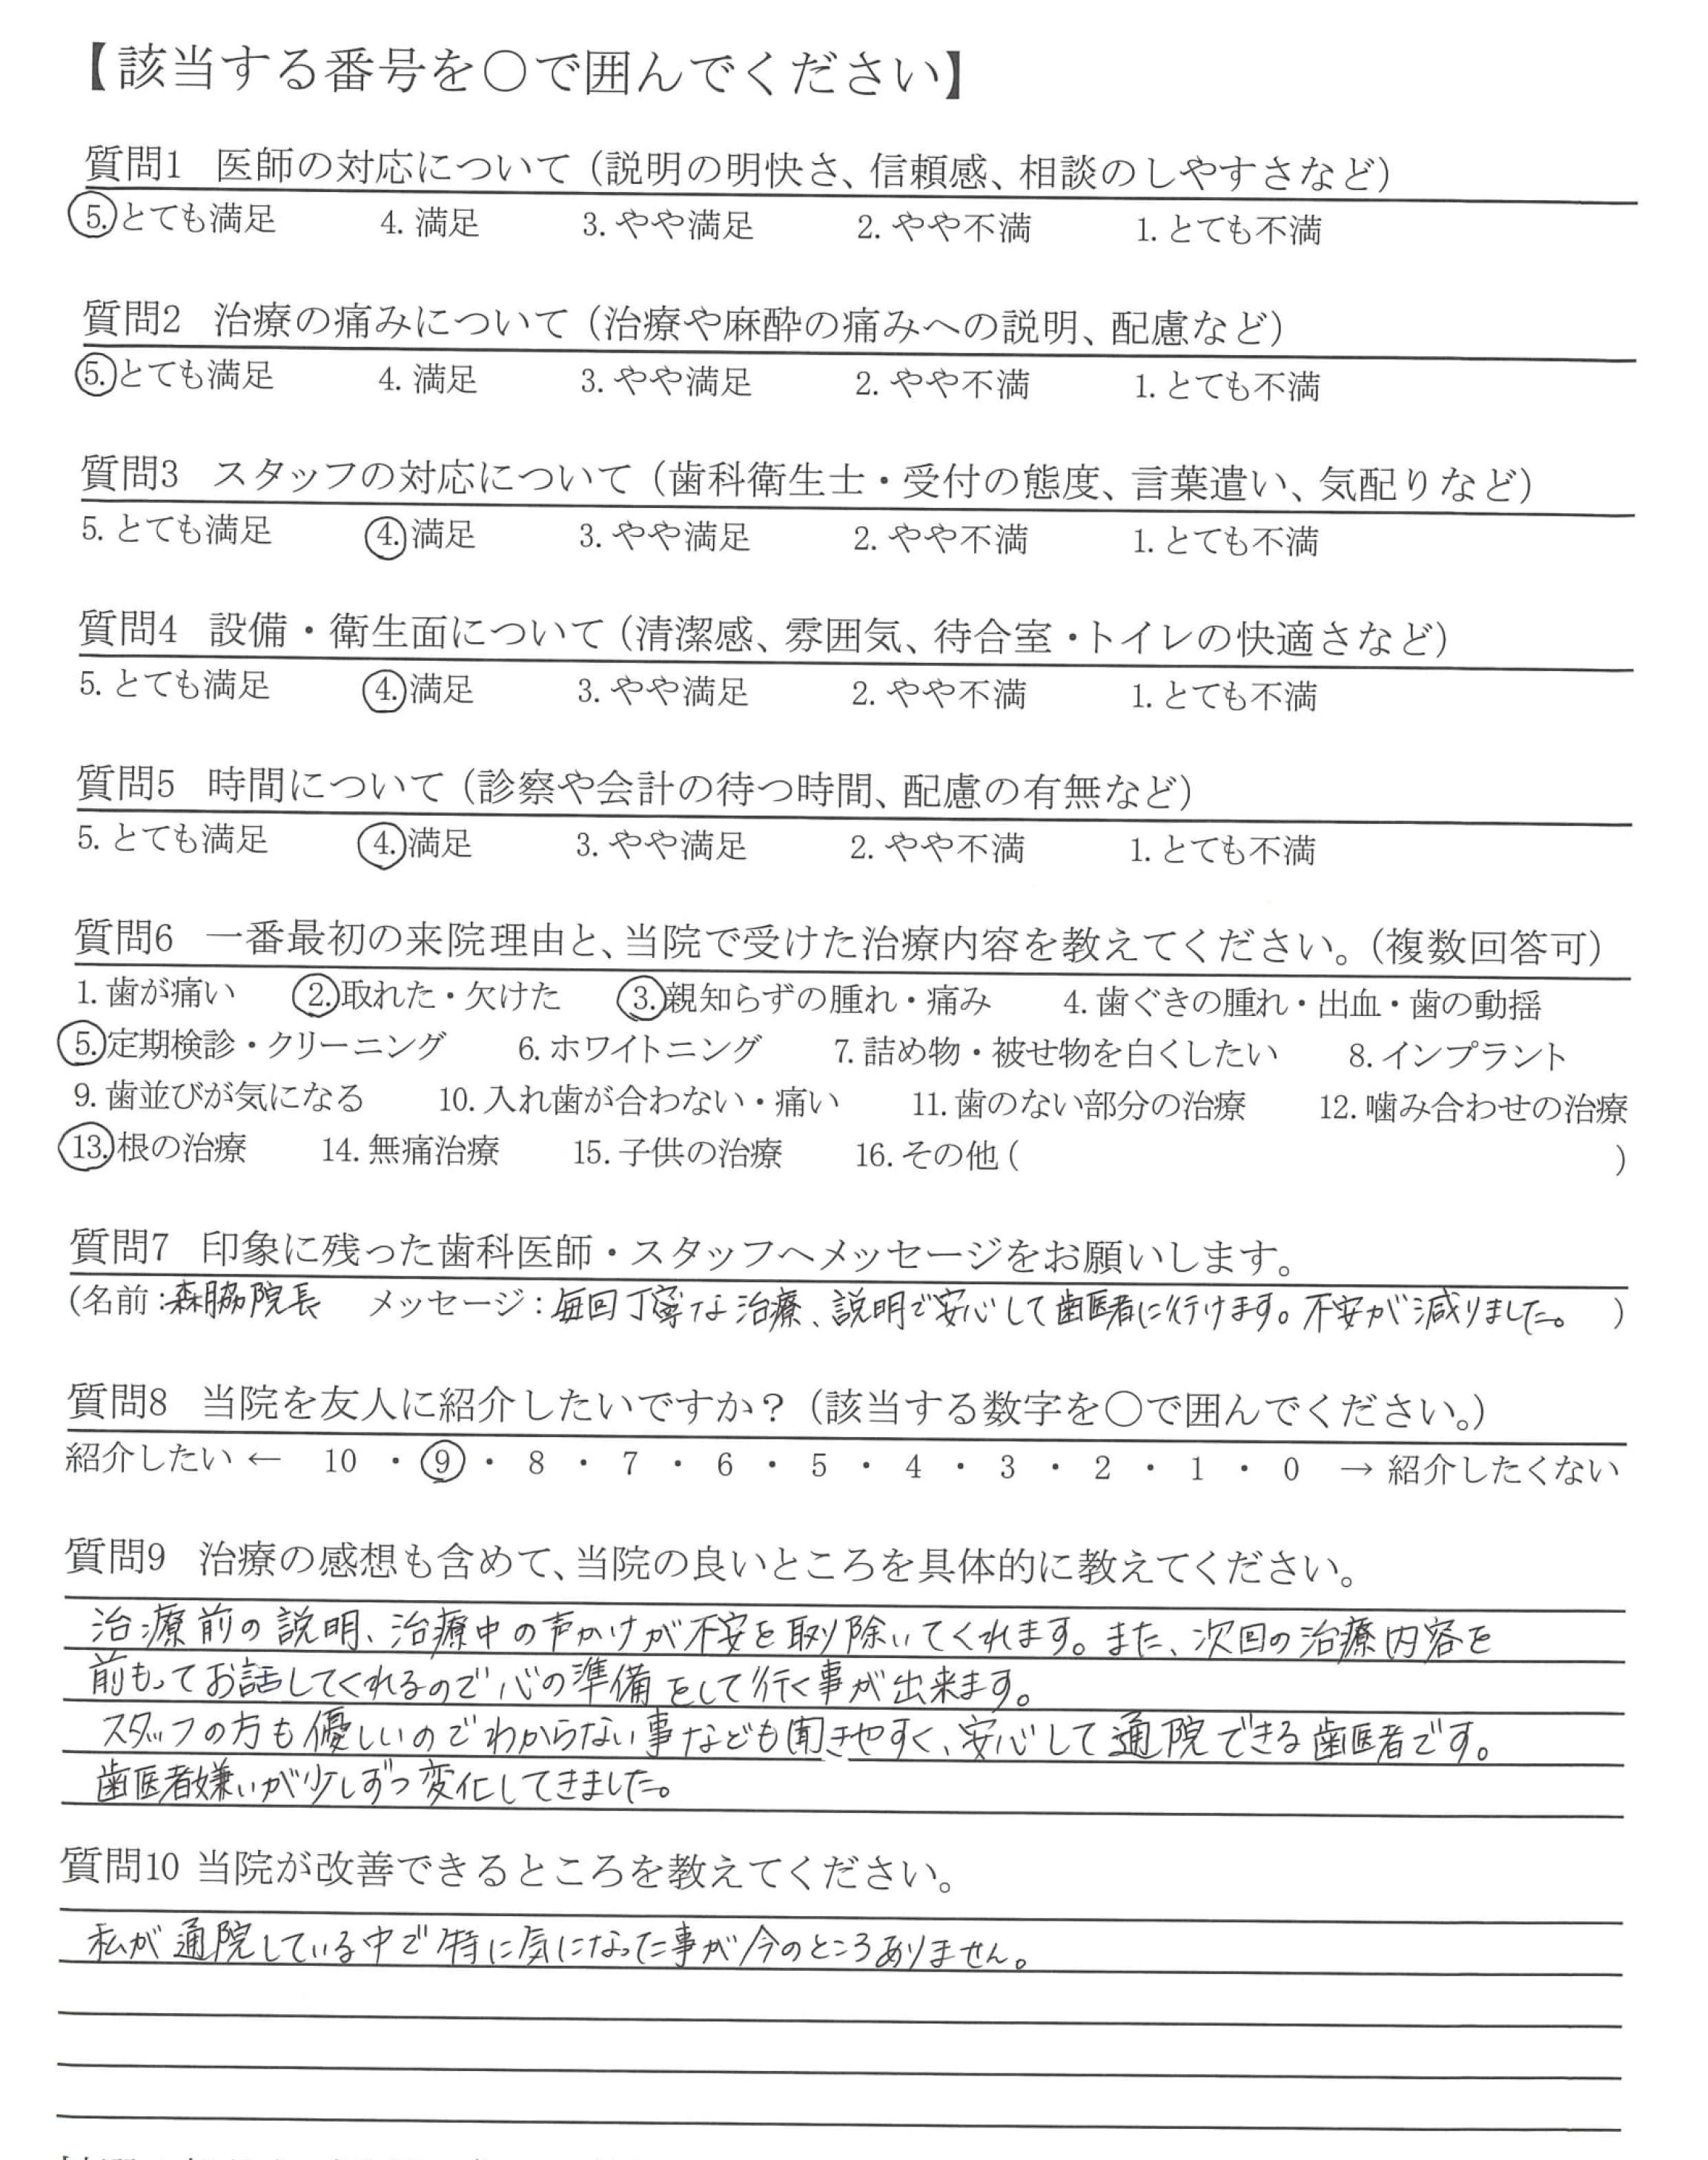 【該当する番号を○で囲んでください】
質問1 医師の対応について（説明の明快さ、信頼感、相談のしやすさなど）
5. とても満足 4. 満足 3. やや満足 2. やや不満 1. とても不満
質問2 治療の痛みについて（治療や麻酔の痛みへの説明、配慮など）
5. とても満足 4. 満足 3. やや満足 2. やや不満 1. とても不満
質問3 スタッフの対応について（歯科衛生士・受付の態度、言葉遣い、気配りなど）
5. とても満足 4. 満足 3. やや満足 2. やや不満 1. とても不満
質問4 設備・衛生面について（清潔感、雰囲気、待合室・トイレの快適さなど）
5. とても満足 4. 満足 3. やや満足 2. やや不満 1. とても不満
質問5 時間について（診察や会計の待つ時間、配慮の有無など）
5. とても満足 4. 満足 3. やや満足 2. やや不満 1. とても不満
質問6 一番最初の来院理由と、当院で受けた治療内容を教えてください。（複数回答可）
1. 歯が痛い 2. 取れた・欠けた 3. 親知らずの腫れ・痛み 4. 歯ぐきの腫れ・出血・歯の動揺
5. 定期検診・クリーニング 6. ホワイトニング 7. 詰め物・被せ物を白くしたい 8. インプラント
9. 歯並びが気になる 10. 入れ歯が合わない・痛い 11. 歯のない部分の治療 12. 噛み合わせの治療
13. 根の治療 14. 無痛治療 15. 子供の治療 16. その他 ( )
質問7 印象に残った歯科医師・スタッフへメッセージをお願いします。
（名前：森脇院長 メッセージ：毎回丁寧な治療、説明で安心して歯医者に行けます。不安が減りました。）
質問8 当院を友人に紹介したいですか？（該当する数字を○で囲んでください。）
紹介したい ← 10 ・ 9 ・ 8 ・ 7 ・ 6 ・ 5 ・ 4 ・ 3 ・ 2 ・ 1 ・ 0 → 紹介したくない
質問9 治療の感想も含めて、当院の良いところを具体的に教えてください。
治療前の説明、治療中の声かけが不安を取り除いてくれます。また、次回の治療内容を
前もってお話してくれるので心の準備をして行く事が出来ます。
スタッフの方も優しいのでわからない事なども聞きやすく、安心して通院できる歯医者です。
歯医者嫌いが少しずつ変化してきました。
質問10 当院が改善できるところを教えてください。
私が通院している中で特に気になった事が今のところありません。